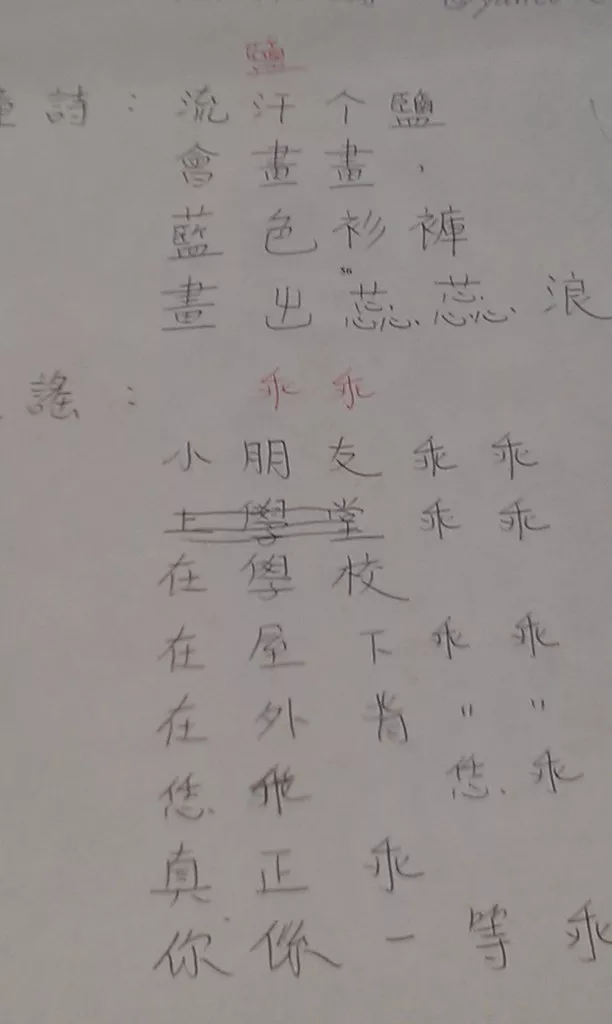 鹽
童詩：流汗个鹽
會畫畫，
藍色衫褲
畫出蕊蕊浪
謠：乖乖
小朋友乖乖
上學堂乖乖
在學校
在屋下乖乖
在外背〃〃
恁乖 恁乖
真正乖
你係一等乖